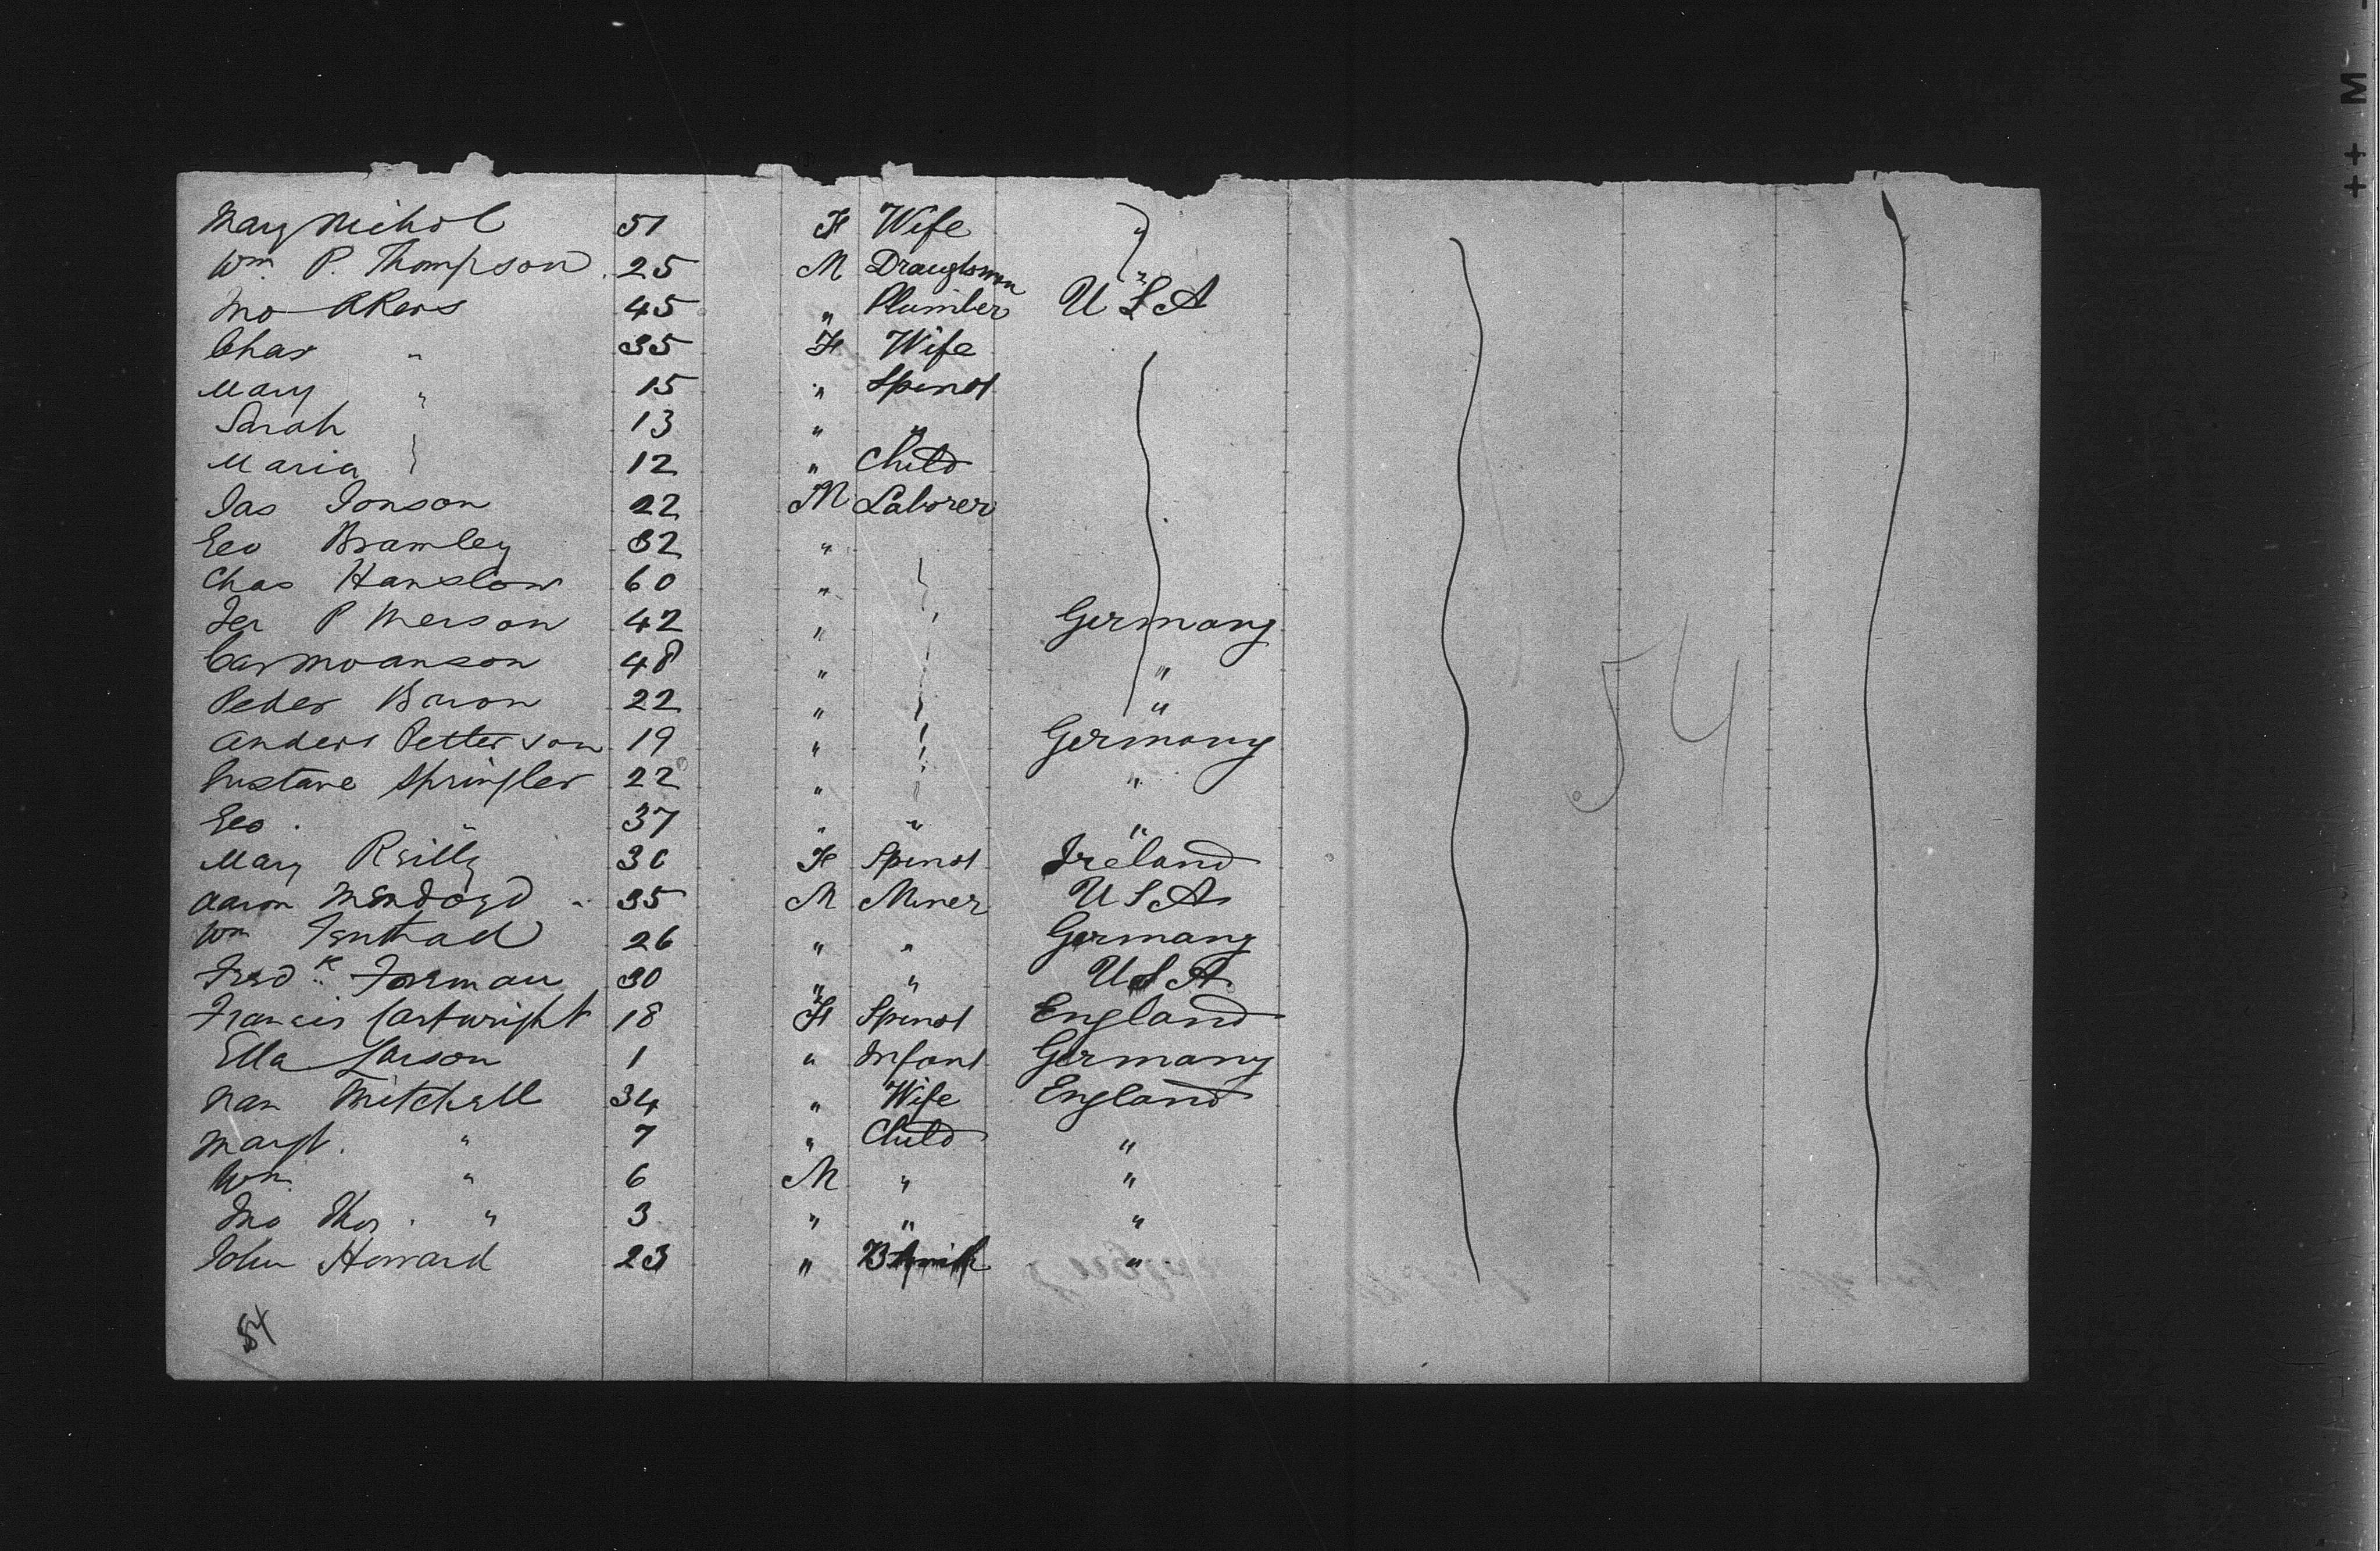 Mary Nichol 51 F Wife "
Wm P. Thompson 25 M Draughtsman "
Jno Akers 45 " Plumber U S A
Chas " 35 F Wife
Mary " 15 " Spinst
Sarah 13 " "
Maria 12 " Child
Jas Jonson 22 M Laborer
Geo Bramley 32 "
Chas Hanslow 60 "
42 " Germany
48 " "
Peder Baron 22 " "
Anders Petterson 19 " Germany
Gustave Springler 22 " "
Geo. " 37 " " "
Mary Reilly 36 F Spinst Ireland
Aaron 35 M Miner U S A
Wm 26 " " Germany
Fredk Forman 30 " " U S A
Francis Cartwright 18 F Spinst England
Ella Larson 1 " Infant Germany
Nan Mitchell 34 " Wife England
Margt. " 7 " Child "
Wm " 6 M " "
Jno Thos. " 3 " " "
John Howard 23 " B Smith "
54
54